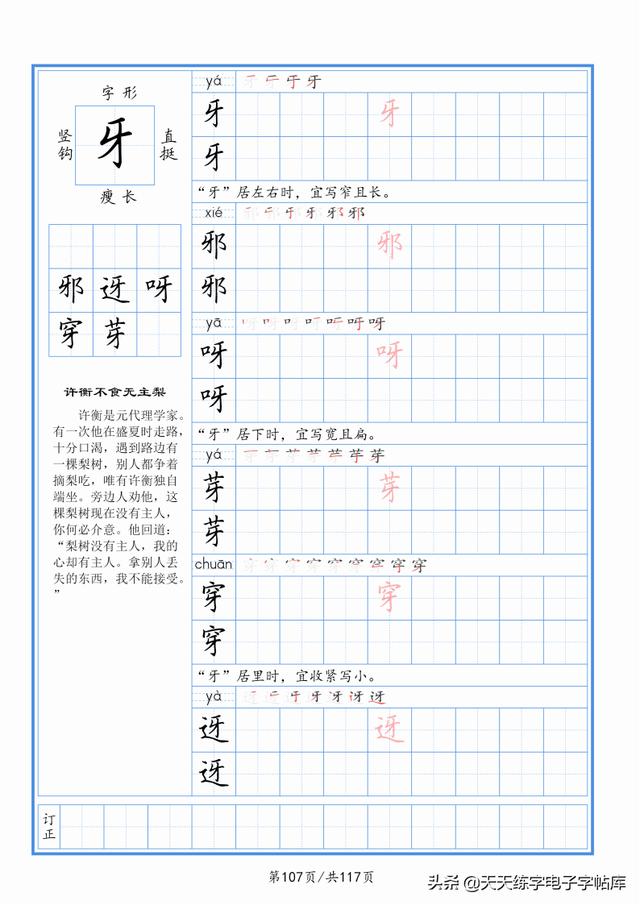 字形
竖钩
牙
直挺
瘦长
邪 迓 呀
穿 芽
许衡不食无主梨
许衡是元代理学家。
有一次他在盛夏时走路，
十分口渴，遇到路边有
一棵梨树，别人都争着
摘梨吃，唯有许衡独自
端坐。旁边人劝他，这
棵梨树现在没有主人，
你何必介意。他回道：
“梨树没有主人，我的
心却有主人。拿别人丢
失的东西，我不能接受。
”
yá
牙 牙
牙
“牙”居左右时，宜写窄且长。
xié
邪 邪
邪
yā
呀 呀
呀
“牙”居下时，宜写宽且扁。
yá
芽 芽
芽
chuān
穿 穿
穿
“牙”居里时，宜收紧写小。
yà
迓 迓
迓
订正
第107页/共117页
头条 @天天练字电子字帖库